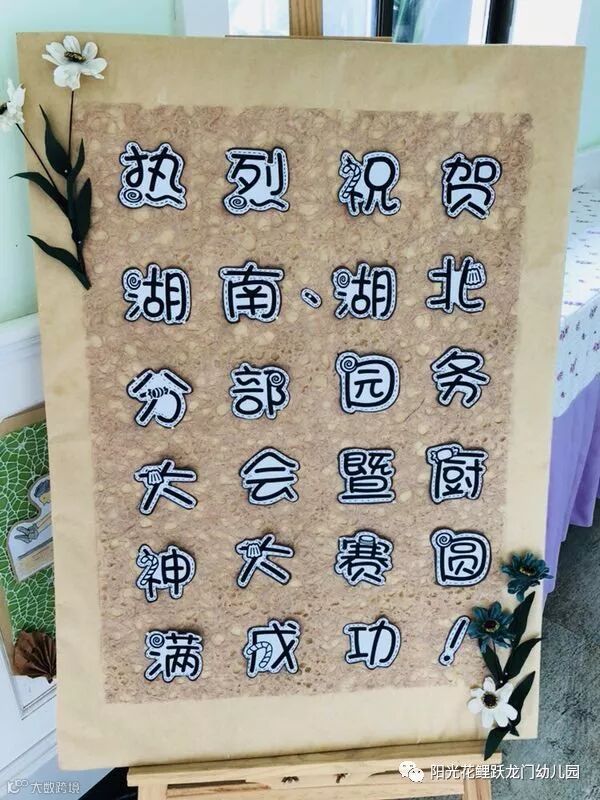 热烈祝贺
湖南、湖北
分部园务
大会暨厨
神大赛圆
满成功！
阳光花鲤跃龙门幼儿园
大数跨境